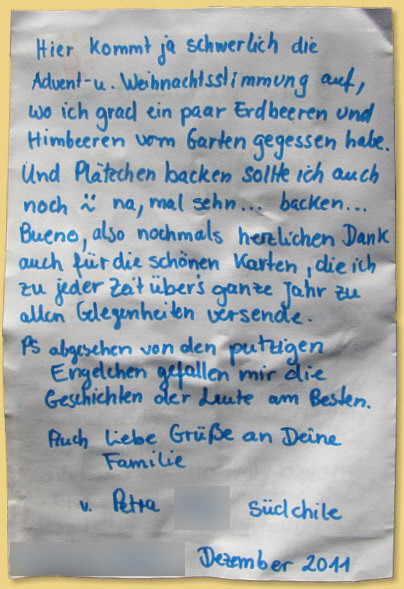 Hier kommt ja schwerlich die
Advent-u. Weihnachtsstimmung auf,
wo ich grad ein paar Erdbeeren und
Himbeeren vom Garten gegessen habe.
Und Plätzchen backen sollte ich auch
noch ¨ na, mal sehn... backen...
Bueno, also nochmals herzlichen Dank
auch für die schönen Karten, die ich
zu jeder Zeit über's ganze Jahr zu
allen Gelegenheiten versende.
PS abgesehen von den putzigen
Engelchen gefallen mir die
Geschichten der Leute am Besten.
Auch liebe Grüße an Deine
Familie
v. Petra Südchile
Dezember 2011